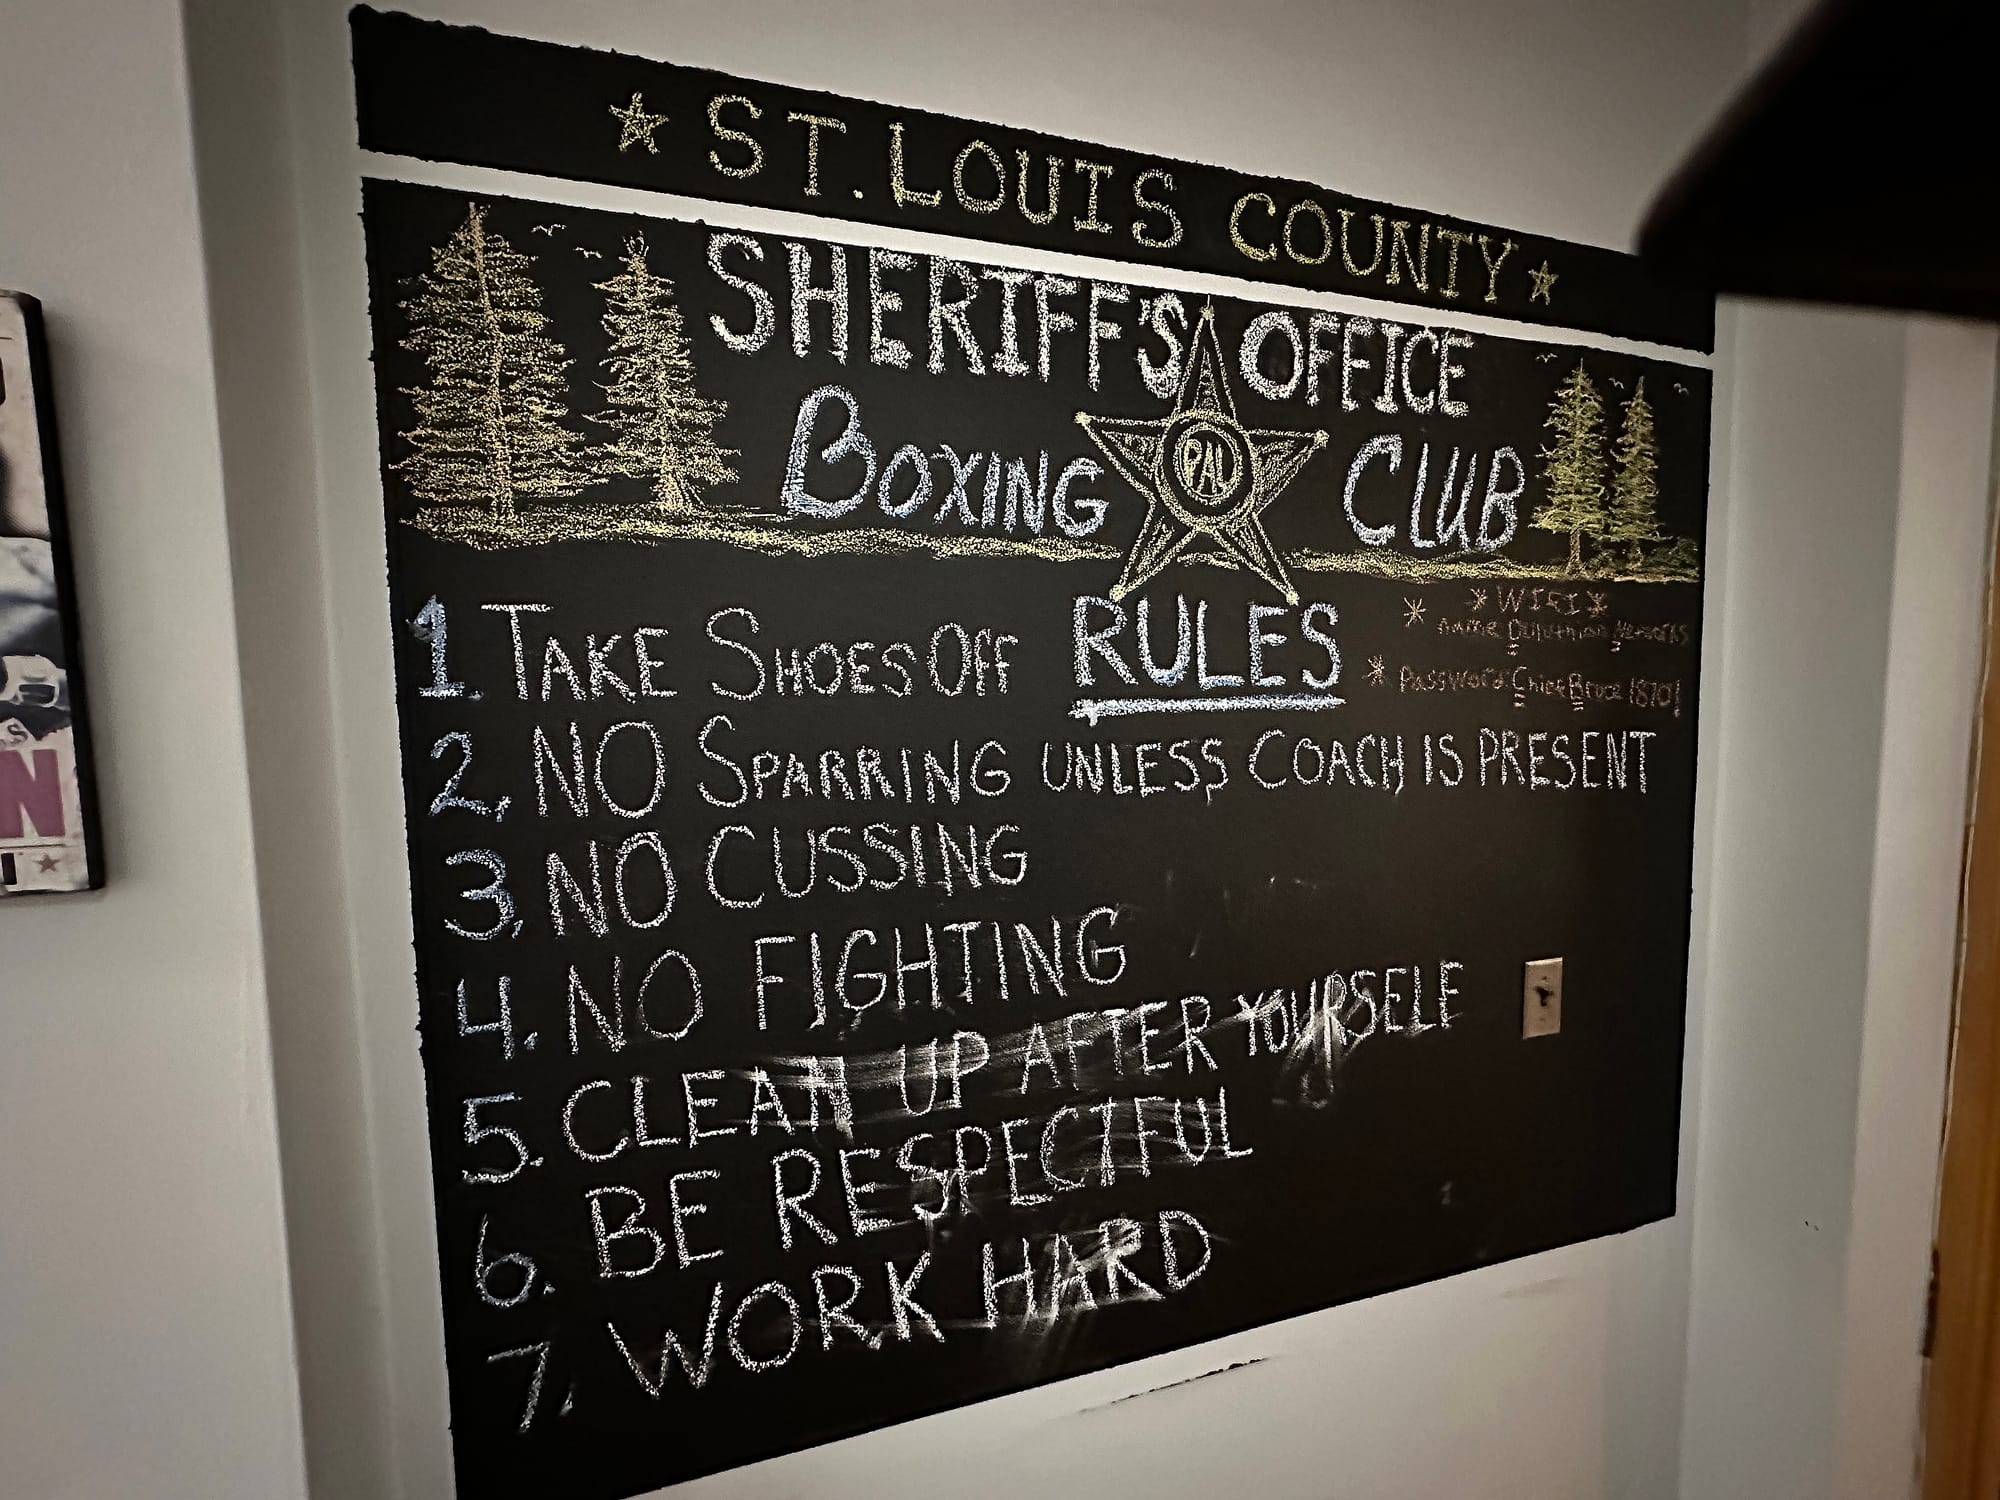 ST. LOUIS COUNTY
SHERIFF'S OFFICE
BOXING PAL CLUB
RULES
1. TAKE SHOES OFF
2. NO SPARRING UNLESS COACH IS PRESENT
3. NO CUSSING
4. NO FIGHTING
5. CLEAN UP AFTER YOURSELF
6. BE RESPECTFUL
7. WORK HARD
* WIFI *
* name Duluthian Networks
* Password: ChiefBruce1870!
N